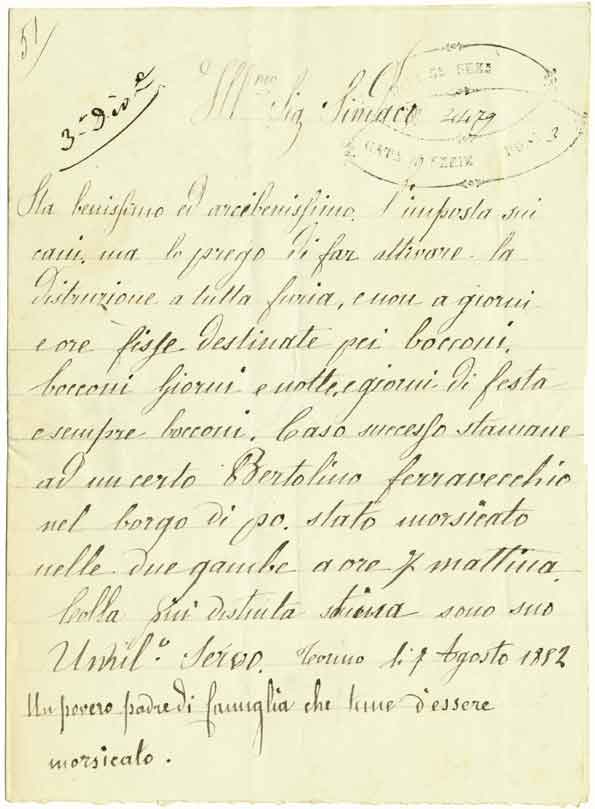 51
3ª Div.e
Ill.mo Sig Sindaco
2479
Sta benissimo ed arcibenissimo. l'imposta sui
cani. ma lo prego di far attivare la
distruzione a tutta furia, e non a giorni
e ore fisse destinate pei bocconi.
bocconi Giorni e notte, e giorni di festa
e sempre bocconi. Caso successo stamane
ad un certo Bertolino ferravecchio
nel borgo di po. stato morsicato
nelle due gambe a ore 7 mattina.
Colla più distinta stima sono suo
Umil.o Servo. Torino li 7 Agosto 1882
Un povero padre di famiglia che teme d'essere
morsicato.